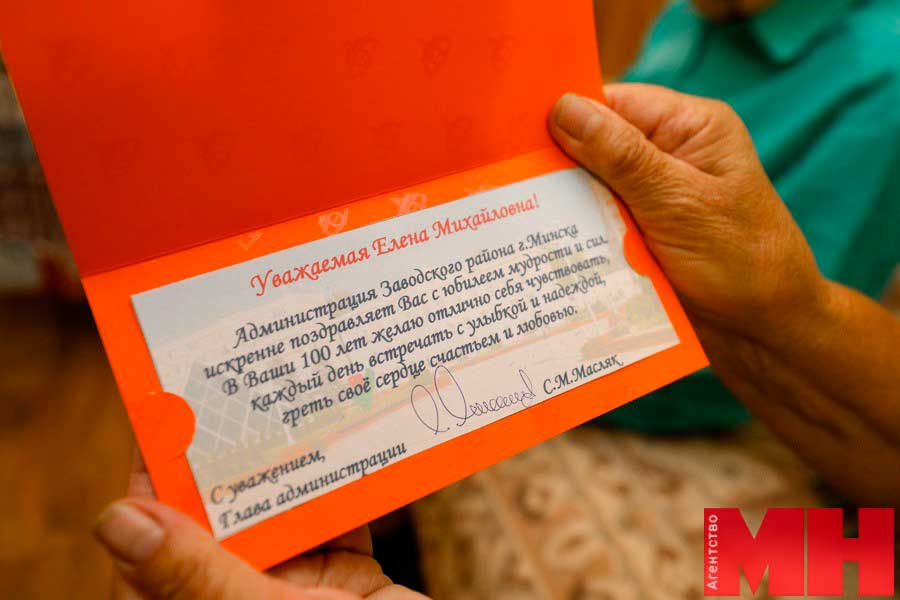 Уважаемая Елена Михайловна!
Администрация Заводского района г.Минска
искренне поздравляет Вас с юбилеем мудрости и сил.
В Ваши 100 лет желаю отлично себя чувствовать,
каждый день встречать с улыбкой и надеждой,
греть своё сердце счастьем и любовью.
С уважением,
Глава администрации
С.М.Масляк
Агентство
МН